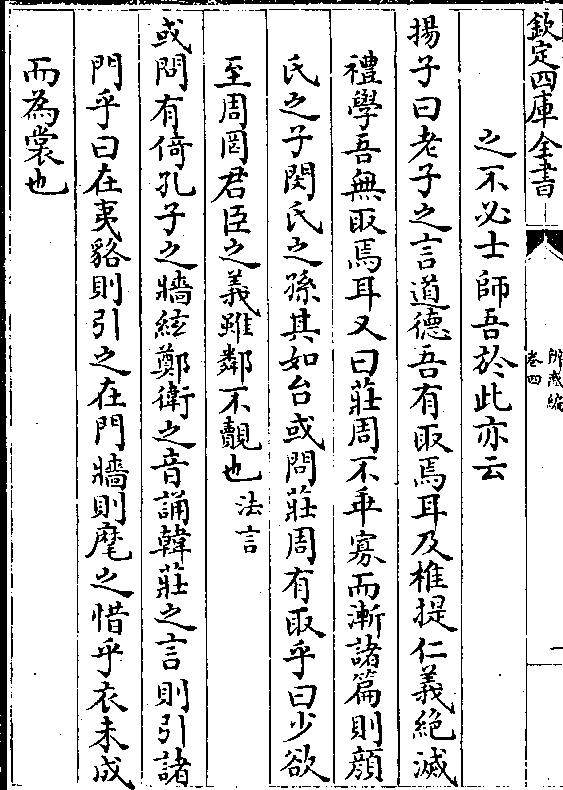 欽定四庫全書
辨惑編
卷四
一
之不必士師吾於此亦云
揚子曰老子之言道德吾有取焉耳及椎提仁義絶滅
禮學吾無取焉耳又曰莊周不乖寡而漸諸篇則顔
氏之子閔氏之孫其如台或問莊周有取乎曰少欲
至周罔君臣之義雖鄰不覿也法言
或問有倚孔子之牆絃鄭衛之音誦韓莊之言則引諸
門乎曰在夷貉則引之在門牆則麾之惜乎衣未成
而為裳也